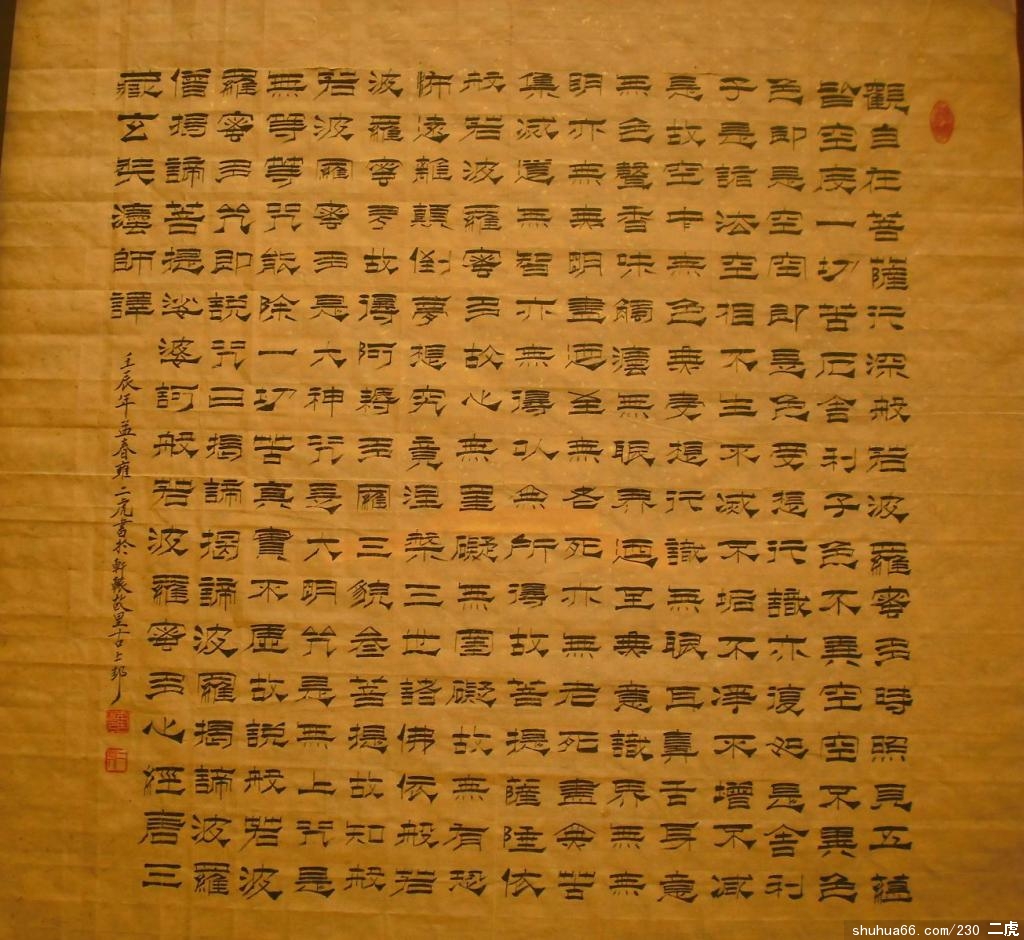 觀自在菩薩行深般若波羅蜜多時照見五蘊
皆空度一切苦厄舍利子色不異空空不異色
色即是空空即是色受想行識亦復如是舍利
子是諸法空相不生不滅不垢不淨不增不減
是故空中無色無受想行識无眼耳鼻舌身意
无色聲香味觸灋無眼界迺至無意識界無无
明亦無無明盡迺至無老死亦無老死盡無苦
集滅道无智亦無得以無所得故菩提薩埵依
般若波羅蜜多故心無罣礙无罣礙故無有恐
怖遠離顛倒夢想究竟涅槃三世諸佛依般若
波羅蜜多故得阿耨多羅三貌叁菩提故知般
若波羅蜜多是大神咒是大明咒是无上咒是
無等等咒能除一切苦真實不虛故說般若波
羅蜜多咒即說咒曰揭諦揭諦波羅揭諦波羅
僧揭諦菩提娑婆訶般若波羅蜜多心經唐三
藏玄奘灋師譯
壬辰年孟春雍二虎書於軒轅故里千古上邽
shuhua66.com/230 二虎